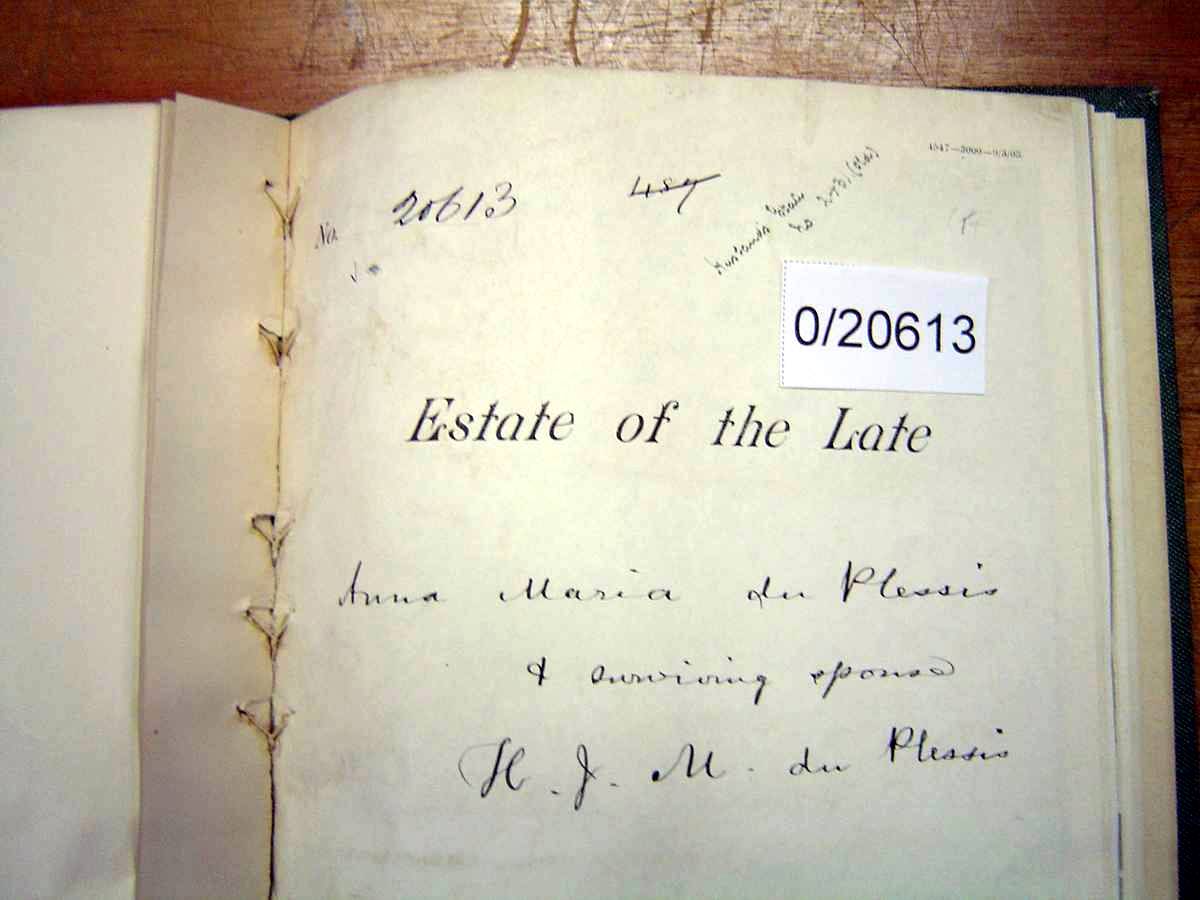 4547—3000—9/3/05
No. 20613
489
Husband's
(Old)
0/20613
Estate of the Late
Anna Maria du Plessis
& surviving spouse
H. J. M. du Plessis